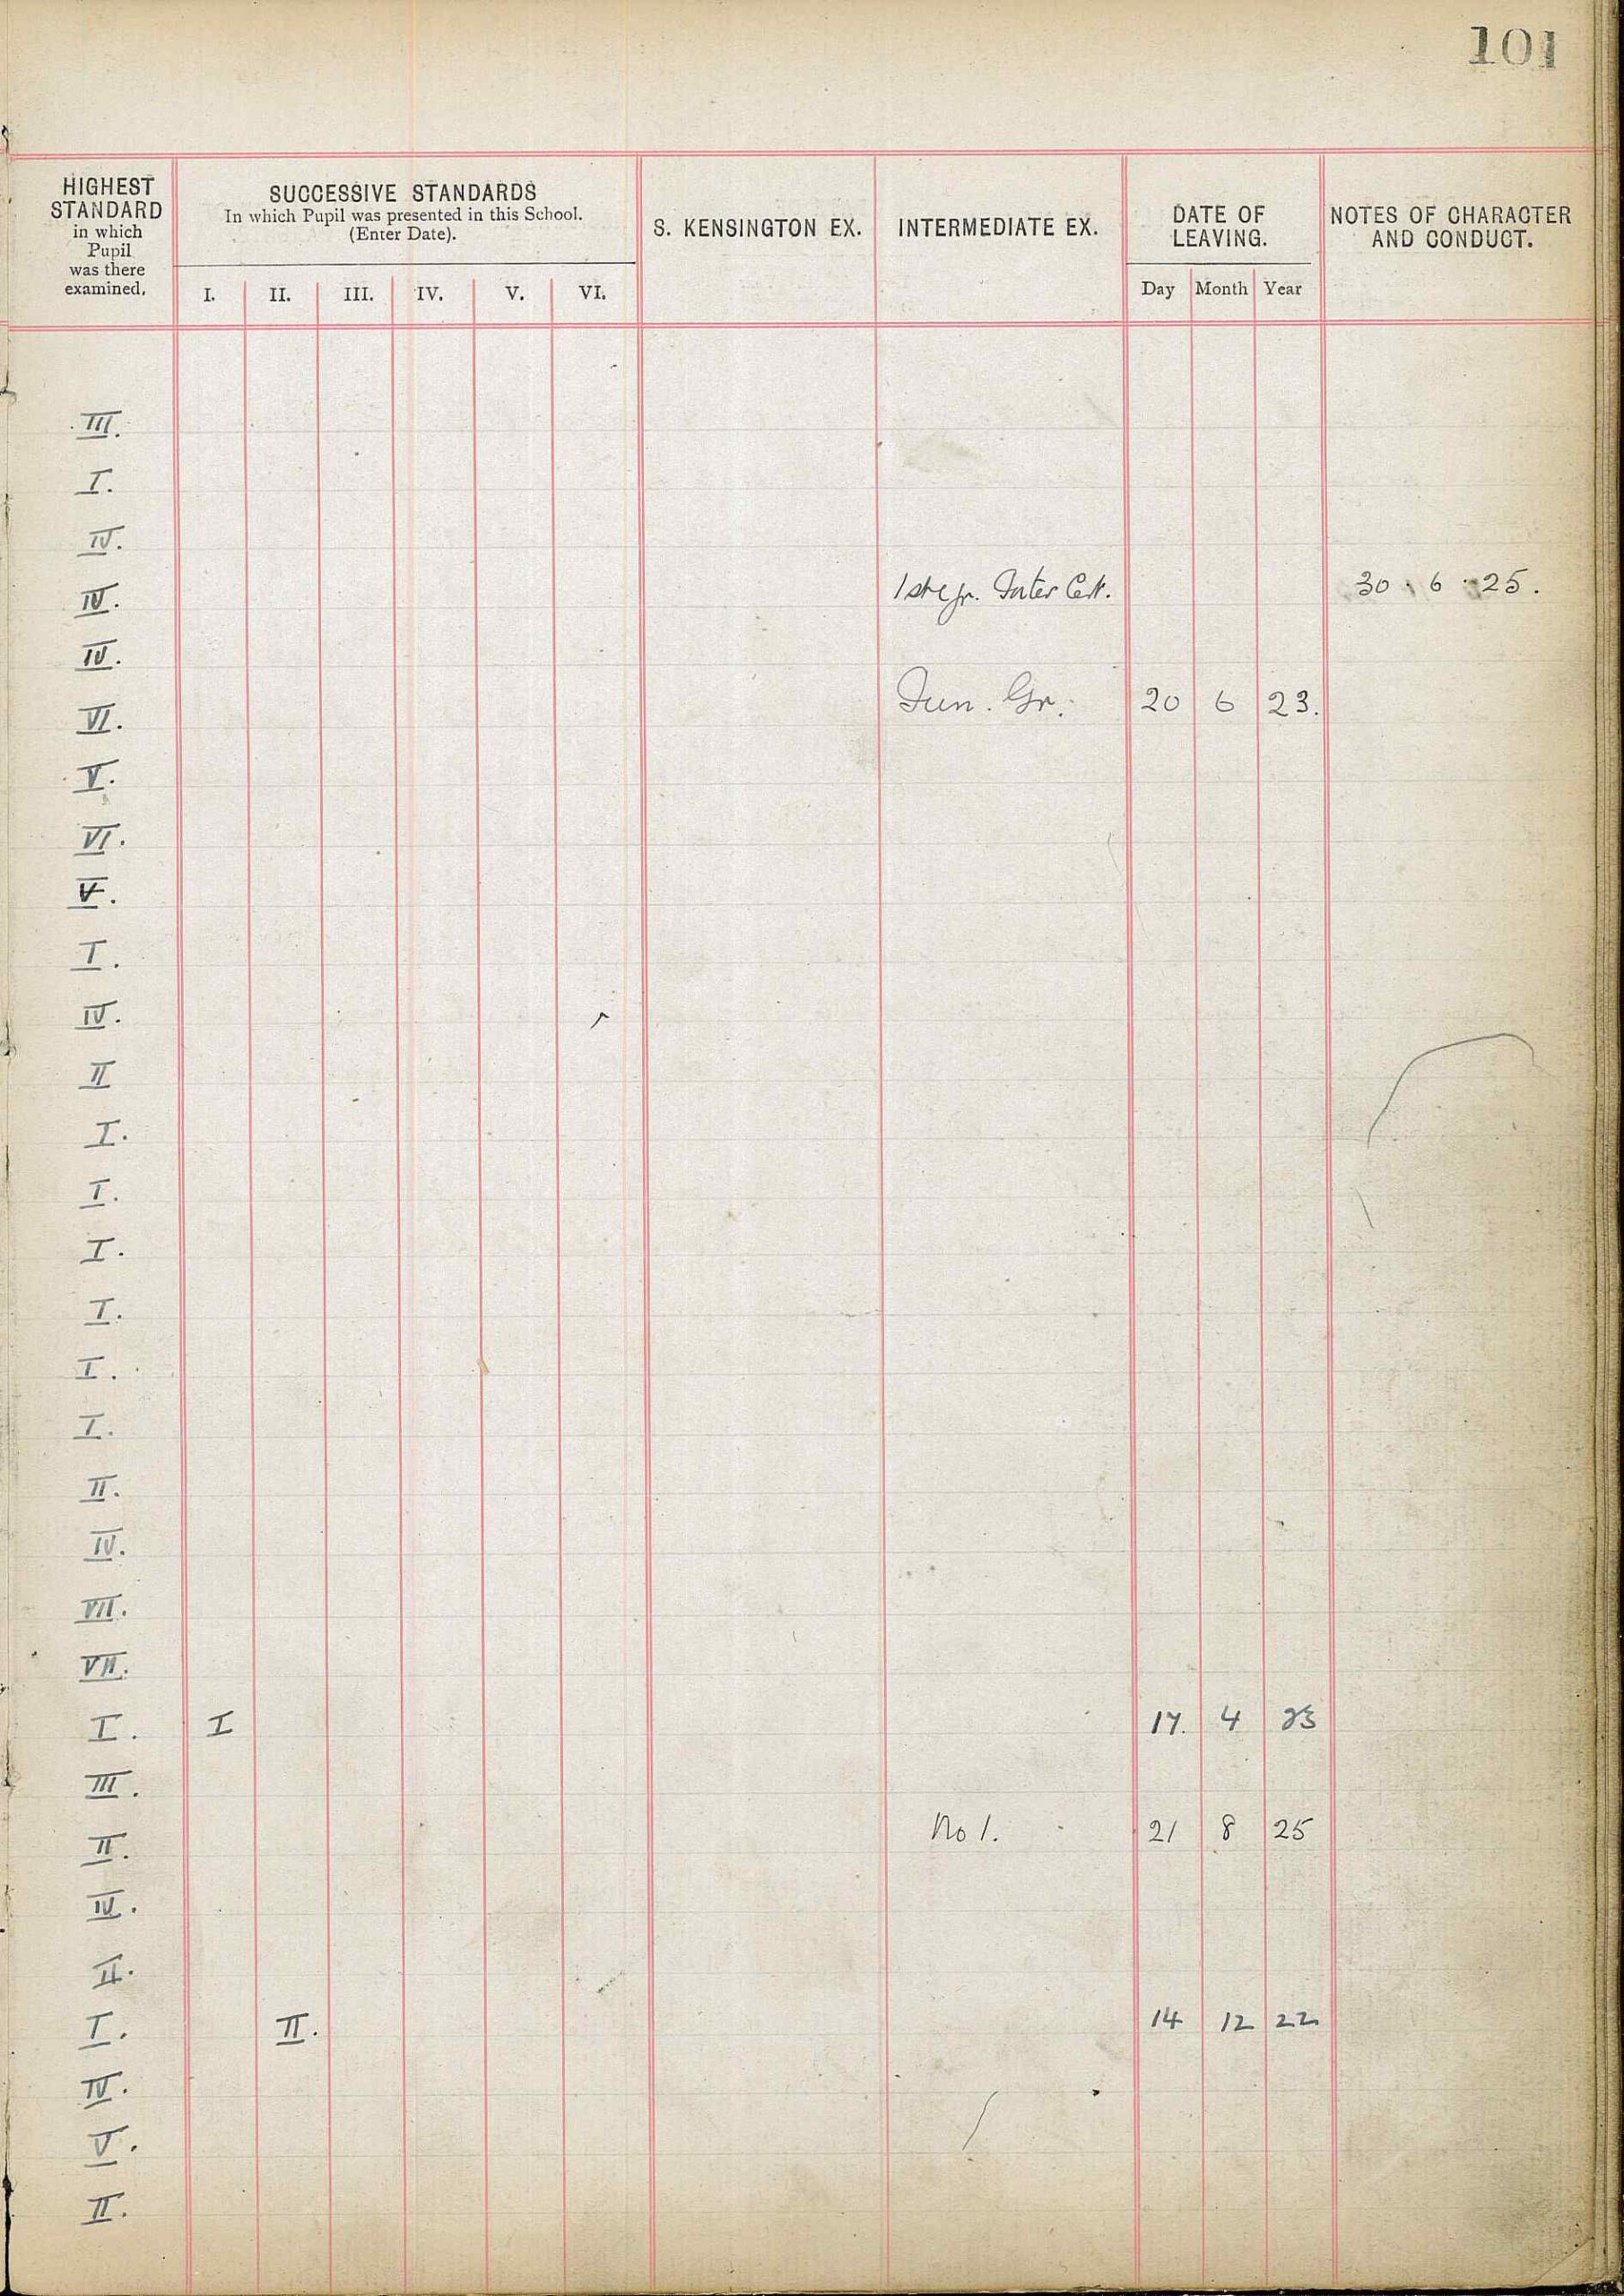 101
HIGHEST STANDARD in which Pupil was there examined.
SUCCESSIVE STANDARDS
In which Pupil was presented in this School.
(Enter Date).
I. II. III. IV. V. VI.
S. KENSINGTON EX.
INTERMEDIATE EX.
DATE OF LEAVING.
Day Month Year
NOTES OF CHARACTER AND CONDUCT.
III.
I.
IV.
IV. Inter Cert. 30 . 6 . 25.
IV.
VI. Jun. Gr. 20 6 23.
V.
VI.
V.
I.
IV.
II
I.
I.
I.
I.
I.
I.
II.
IV.
VII.
VII.
I. I 17. 4 23
III.
II. No 1. 21 8 25
IV.
II.
I. II. 14 12 22
IV.
V.
II.